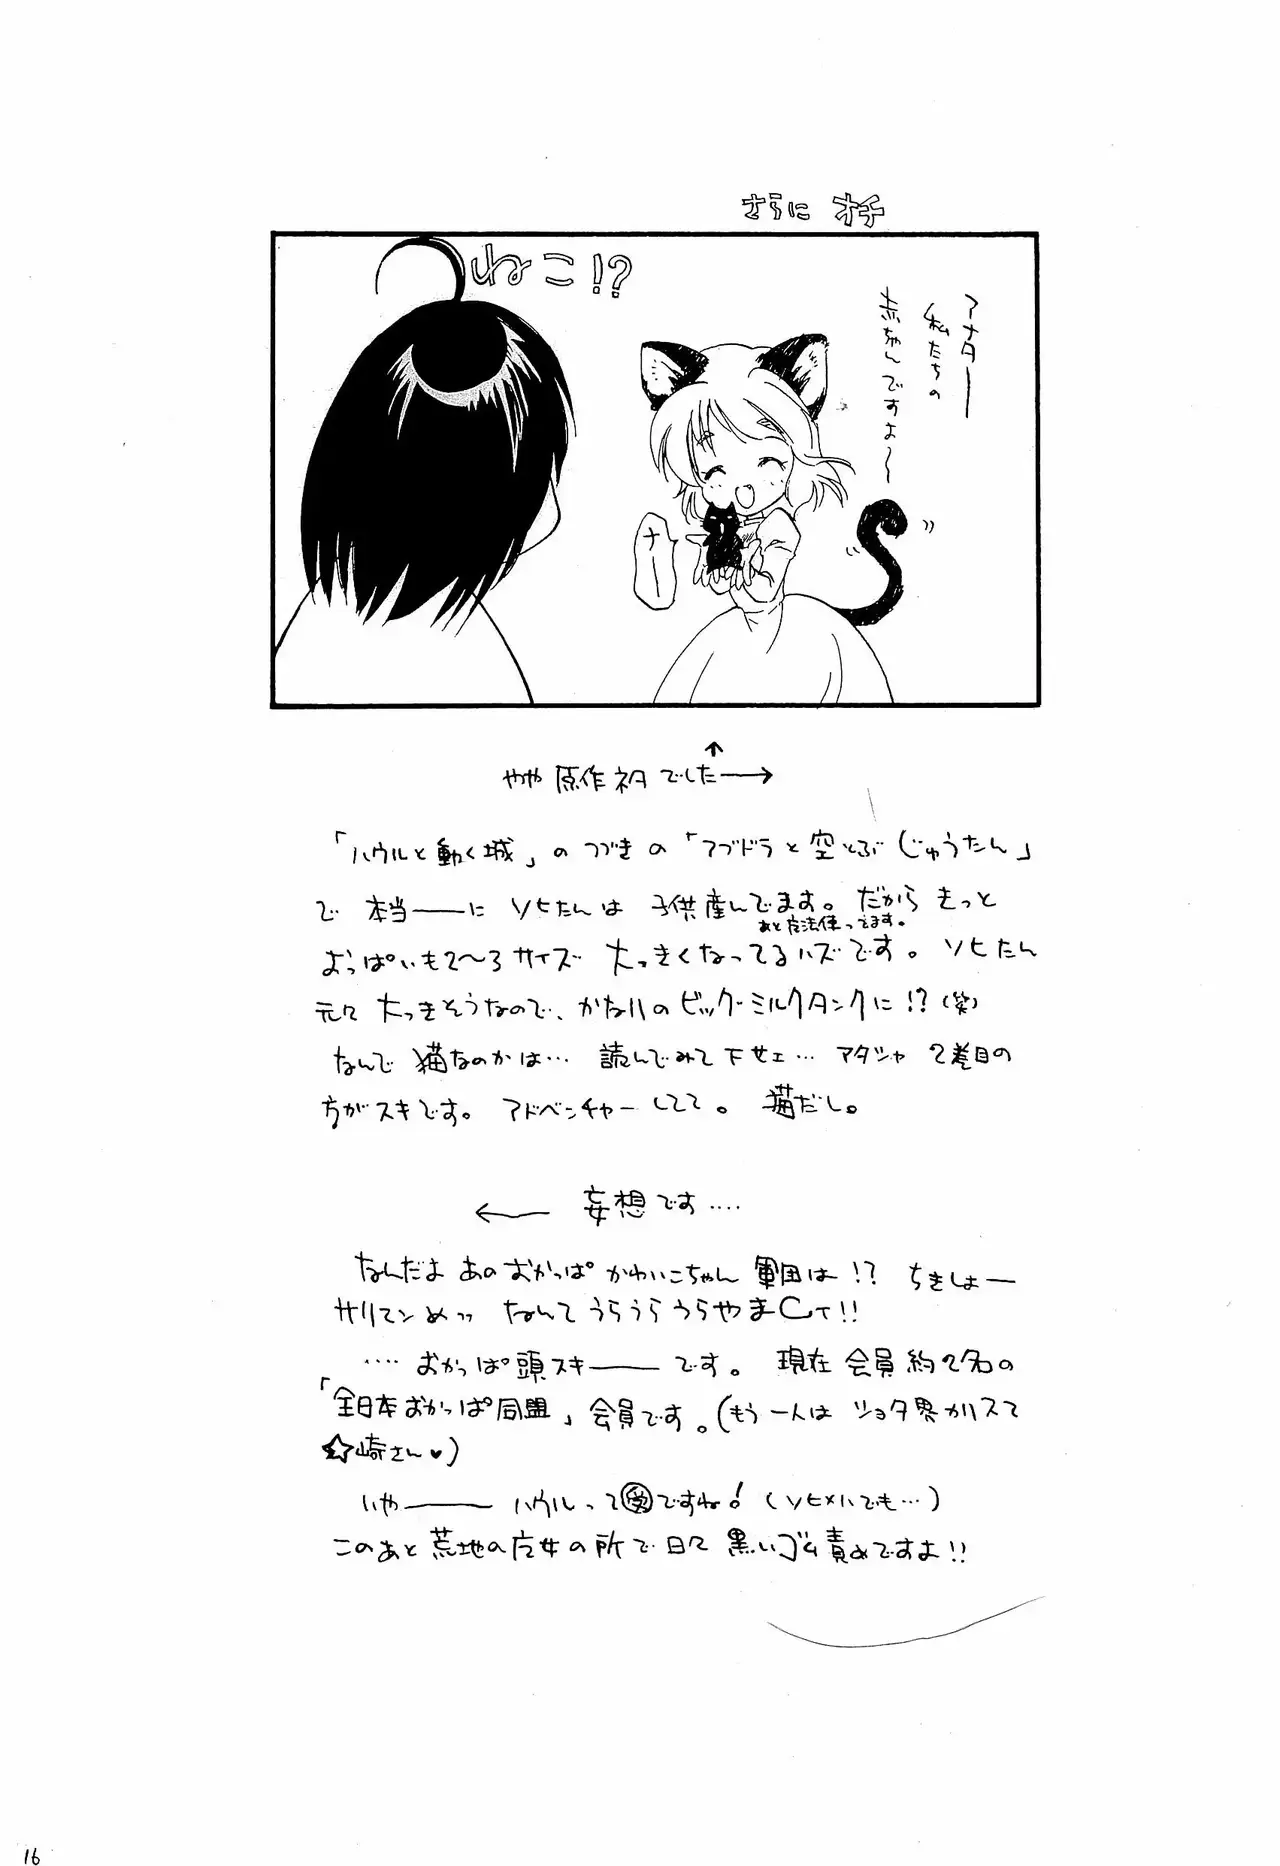 さらに オチ
ねこ!?
アナター
私たちの
赤ちゃんですよ〜
ナー
↑
やや原作ネタでした→
「ハウルと動く城」のつづきの「アブドラと空とぶじゅうたん」
で 本当ーーに ソヒたんは 子供産んでます。だから きっと
あと魔法使ってます。
おっぱいも2〜3サイズ 大っきくなってるハズです。ソヒたん
元々 大っきそうなので、かなりのビッグ・ミルクタンクに!?(笑)
なんで 猫なのかは… 読んでみて下せェ… アタシャ 2巻目の
方がスキです。アドベンチャーしてて。猫だし。
← 妄想です‥‥
なんだよ あのおかっぱ かわいこちゃん 軍団は!? ちきしょー
サリマンめッッ なんて うらうらうらやまCィ!!
‥‥ おかっぱ頭スキーーです。 現在 会員 約2名の
「全日本おかっぱ同盟」会員です。(もう一人は ショタ界カリスマ
☆崎さん♥)
いやーー ハウルって受ですね! (ソヒ×ハでも…)
このあと 荒地の魔女の所で 日々 黒いゴム責めですよ!!
16